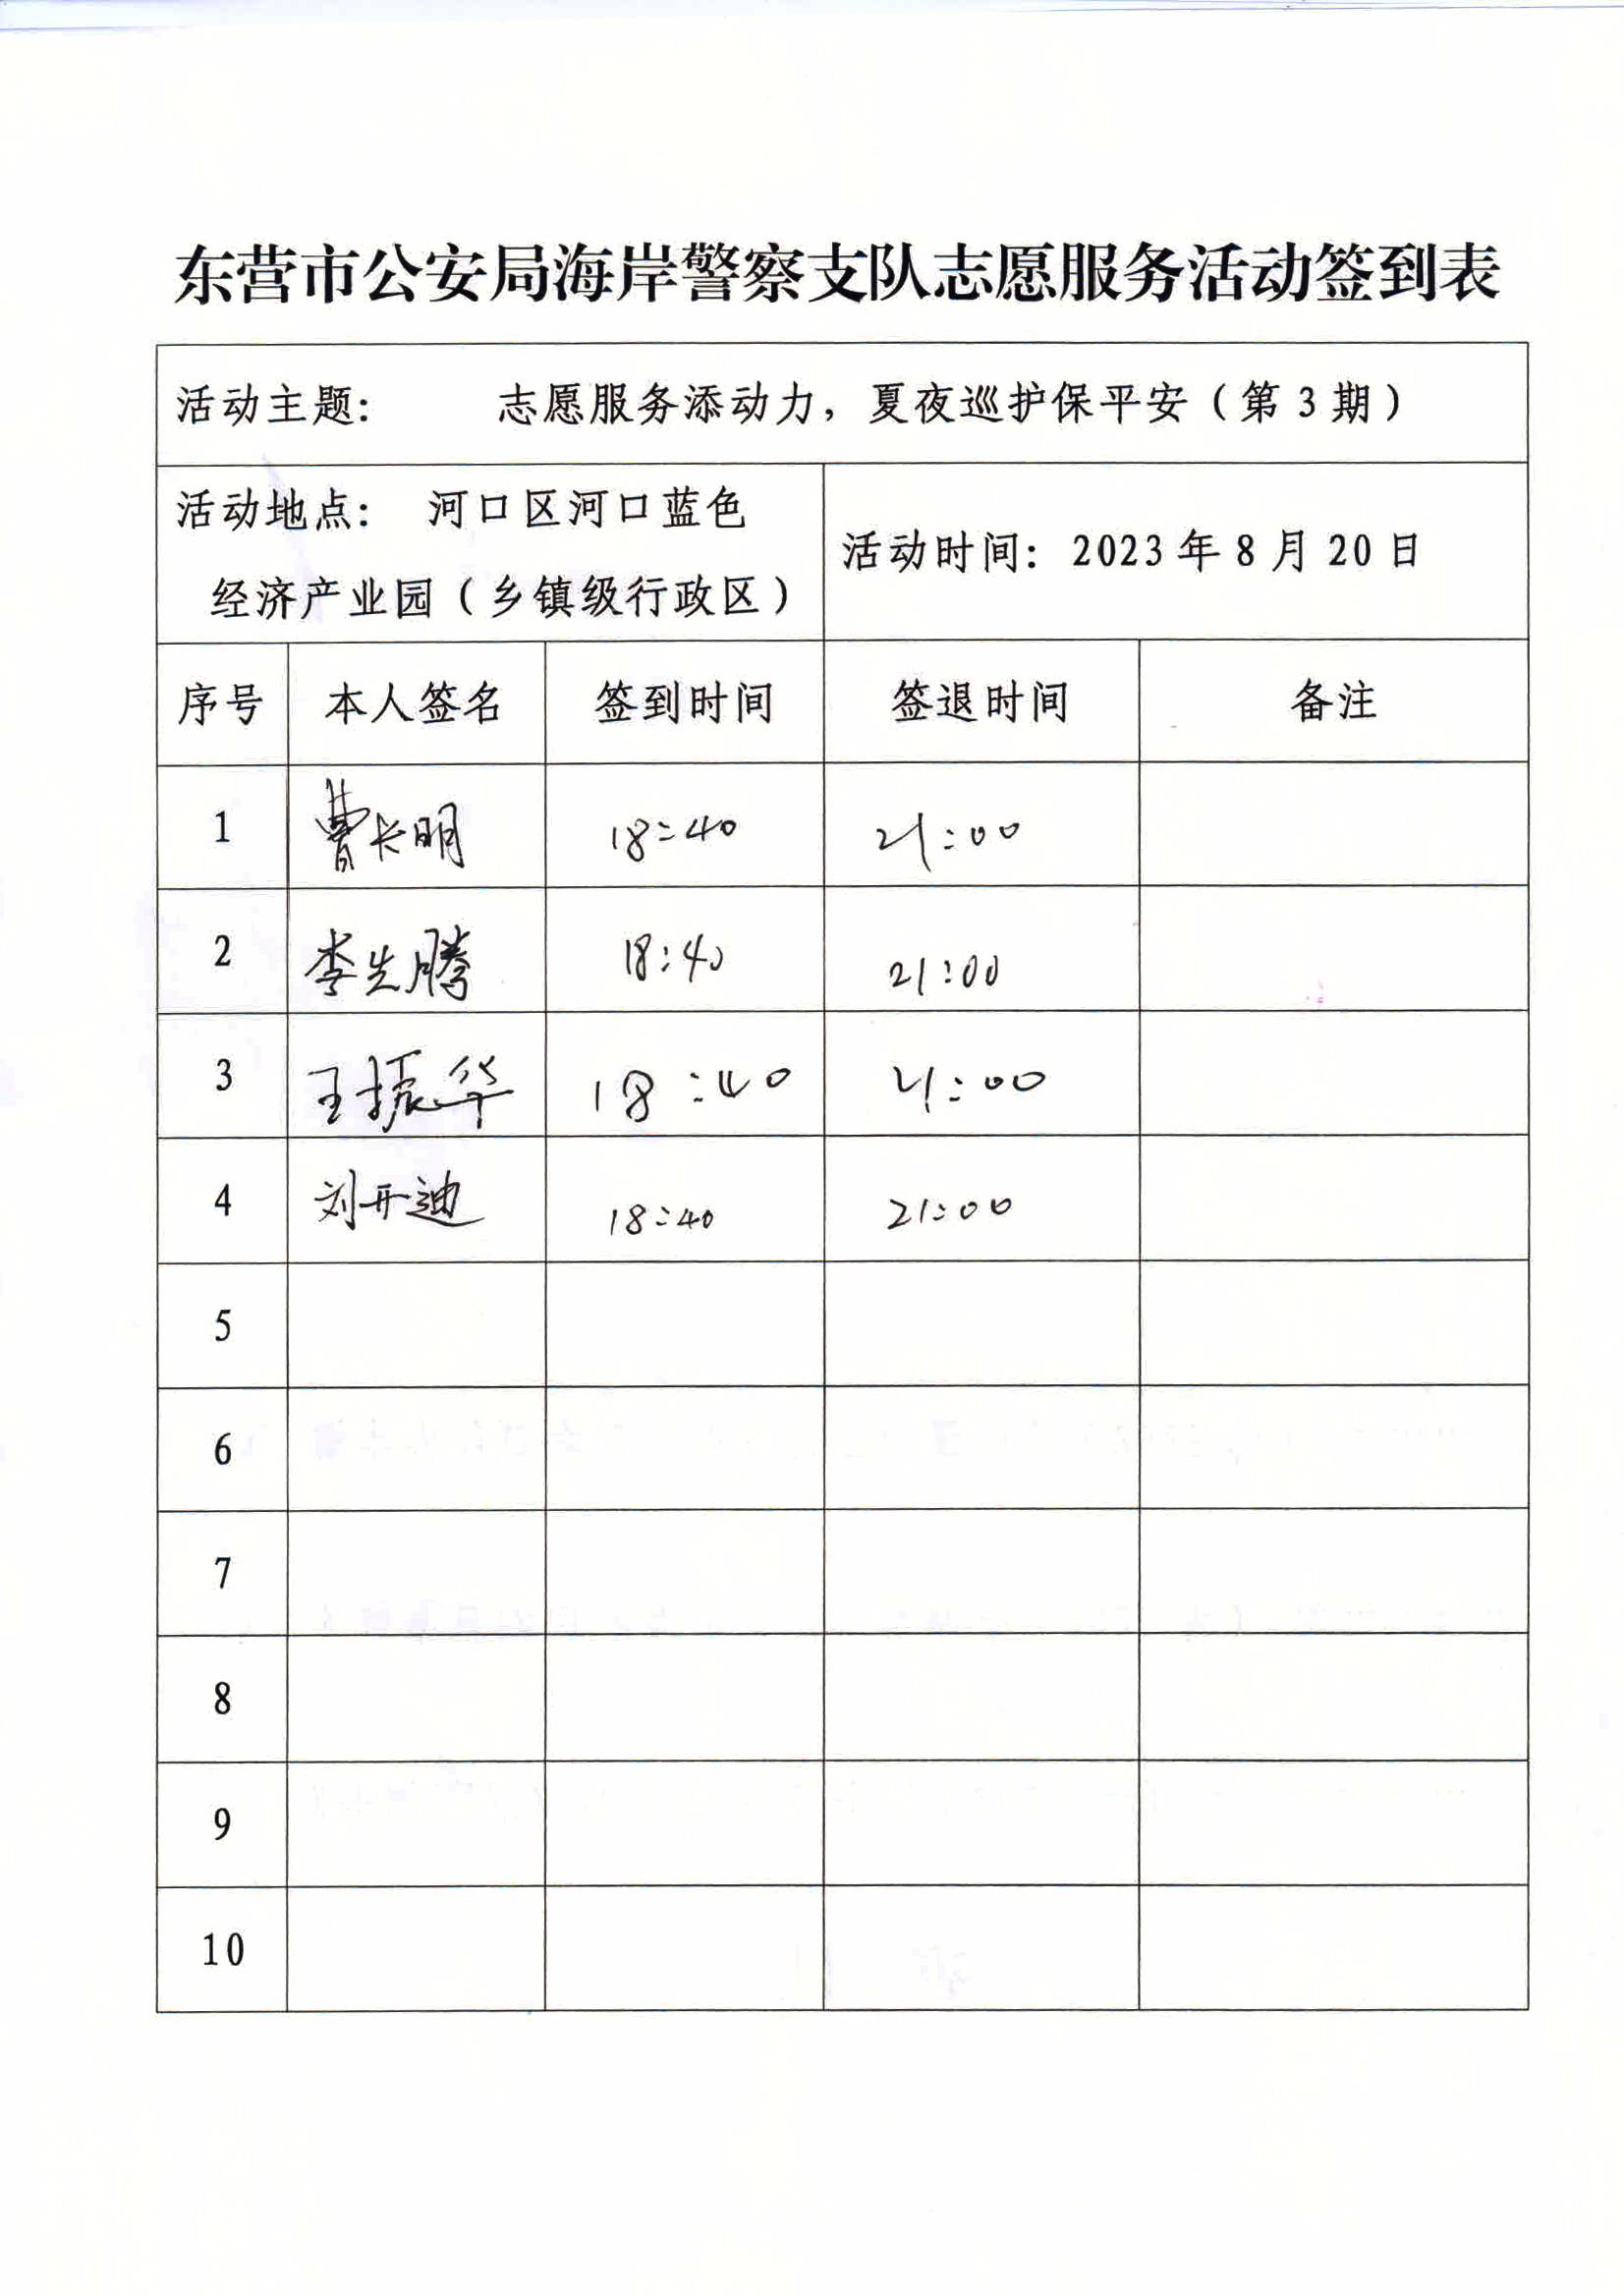 东营市公安局海岸警察支队志愿服务活动签到表
活动主题: 志愿服务添动力，夏夜巡护保平安（第3期）
活动地点: 河口区河口蓝色
经济产业园（乡镇级行政区）
活动时间: 2023年8月20日
序号 本人签名 签到时间 签退时间 备注
1 曹长明 18:40 21:00
2 李先腾 18:40 21:00
3 王振华 18:40 21:00
4 刘开迪 18:40 21:00
5
6
7
8
9
10